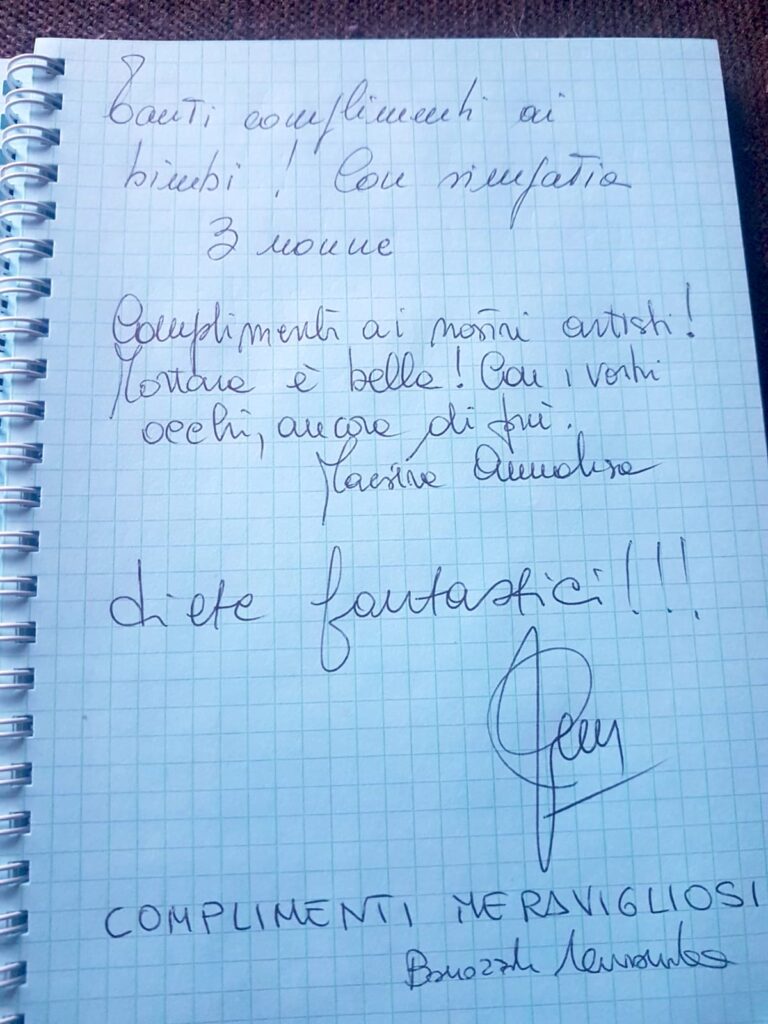 Tanti complimenti ai
bimbi! Con simpatia
3 nonne
Complimenti ai nostri artisti!
Mortara è bella! Con i vostri
occhi, ancora di più.
Maestra Annalisa
Siete fantastici!!!
COMPLIMENTI MERAVIGLIOSI